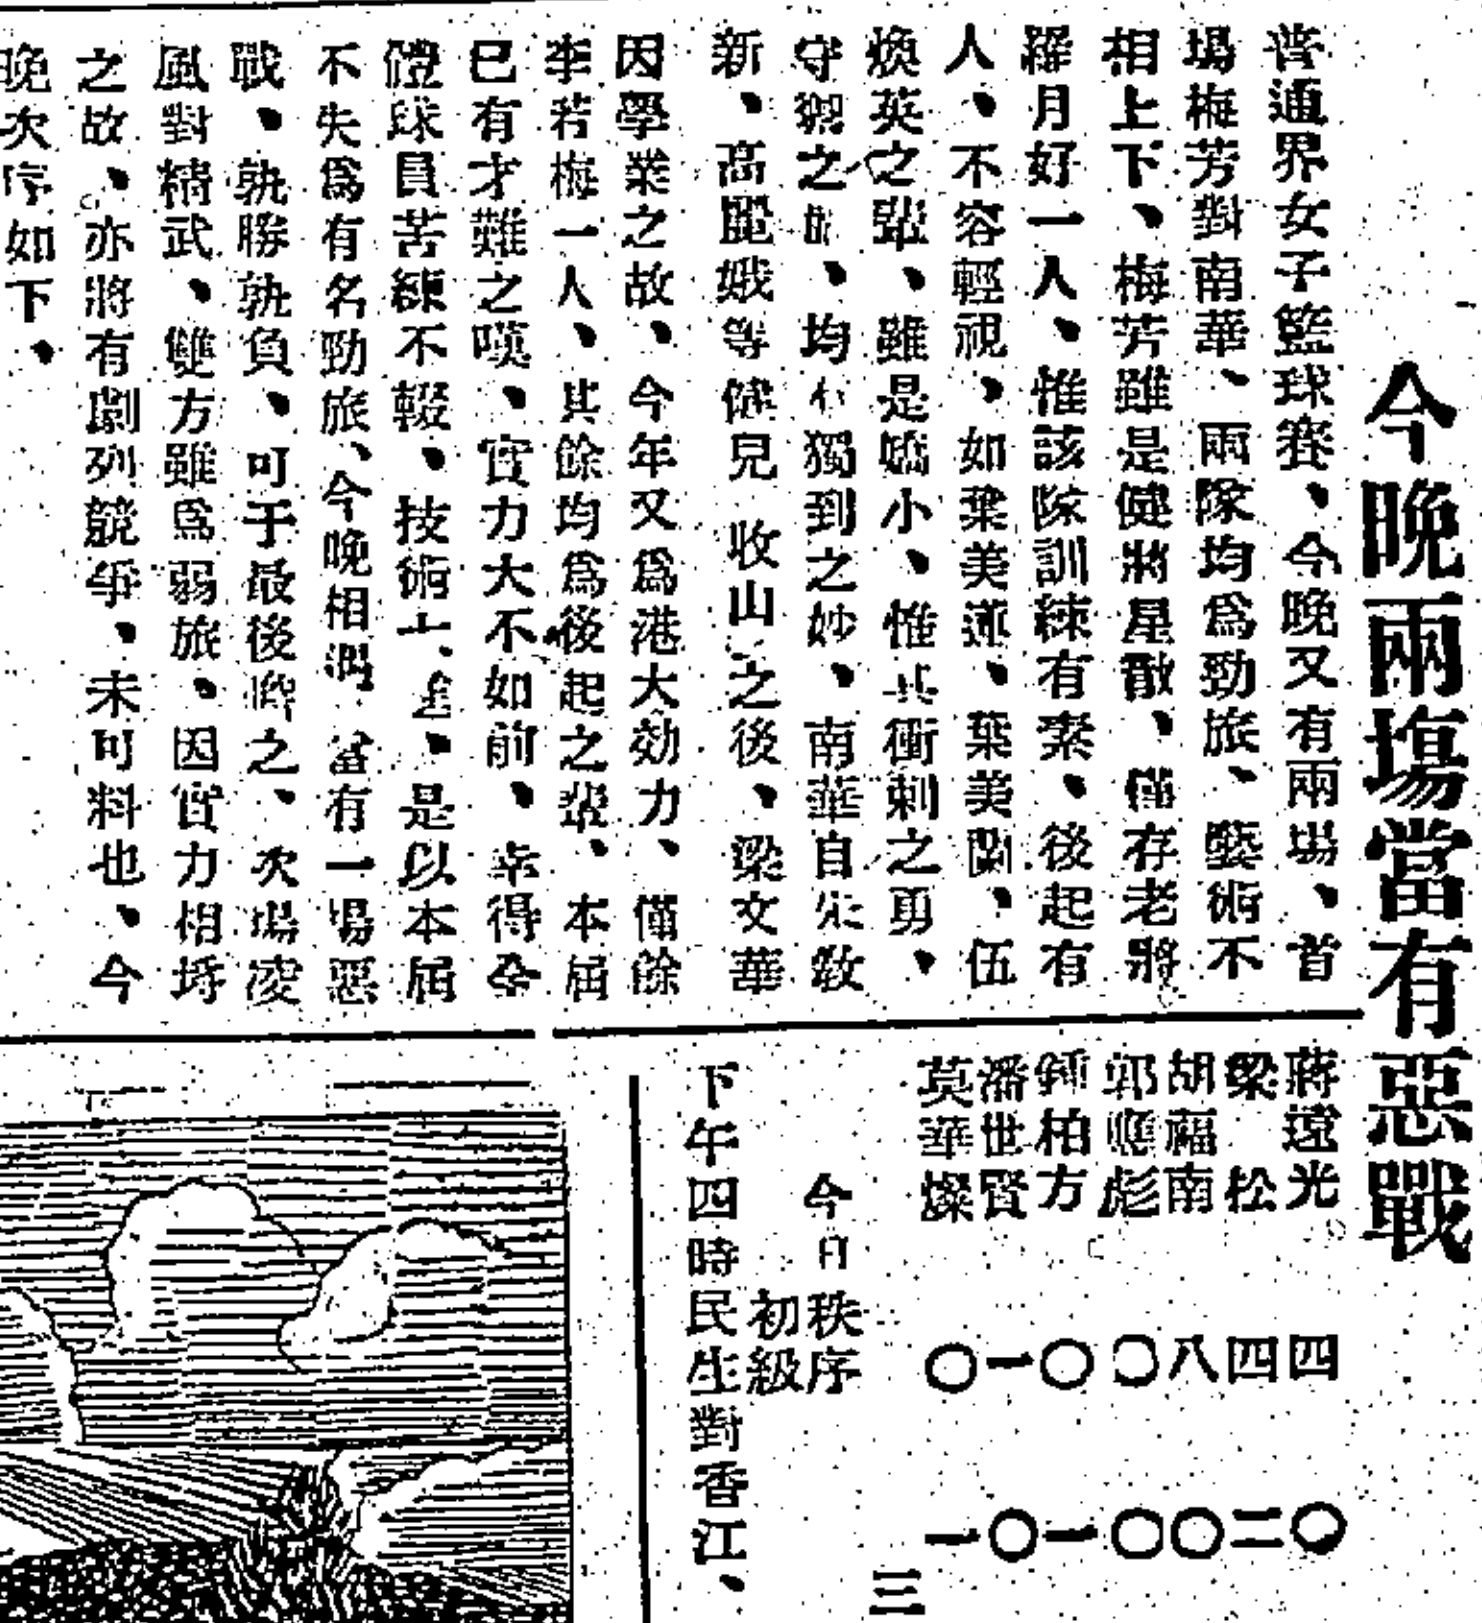 今晚兩塲當有惡戰
普通界女子籃球賽、今晚又有兩塲、首
塲梅芳對南華、兩隊均爲勁旅、藝術不
相上下、梅芳雖是健將星散、僅存老將
羅月好一人、惟該隊訓練有素、後起有
人、不容輕視、如葉美蓮、葉美蘭、伍
煥英之輩、雖是嬌小、惟其衝刺之勇、
守禦之 、均 獨到之妙、南華自朱敎
新、高麗娥等健兒 收山之後、梁文華
因學業之故、今年又爲港大効力、僅餘
李若梅一人、其餘均爲後起之輩、本屆
已有才難之嘆、實力大不如前、幸得全
體球員苦練不輟、技術上進、是以本屆
不失爲有名勁旅、今晚相遇 當有一塲惡
戰、孰勝孰負、可于最後 之、次塲凌
風對精武、雙方雖爲弱旅、因實力相埓
之故、亦將有劇列競爭、未可料也、今
晚次序如下、
蔣遠光 四 〇
梁松 四 二
胡福南 八 〇
郭應彪 〇 〇
鍾柏方 〇 一
潘世賢 一 〇
莫華燦 〇 一
三
今日秩序
初級
下午四時民生對香江、